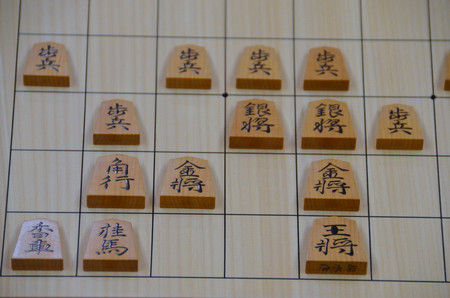 歩兵 歩兵 歩兵 歩兵
歩兵 銀将 銀将 歩兵
角行 金将 金将
香車 桂馬 王将